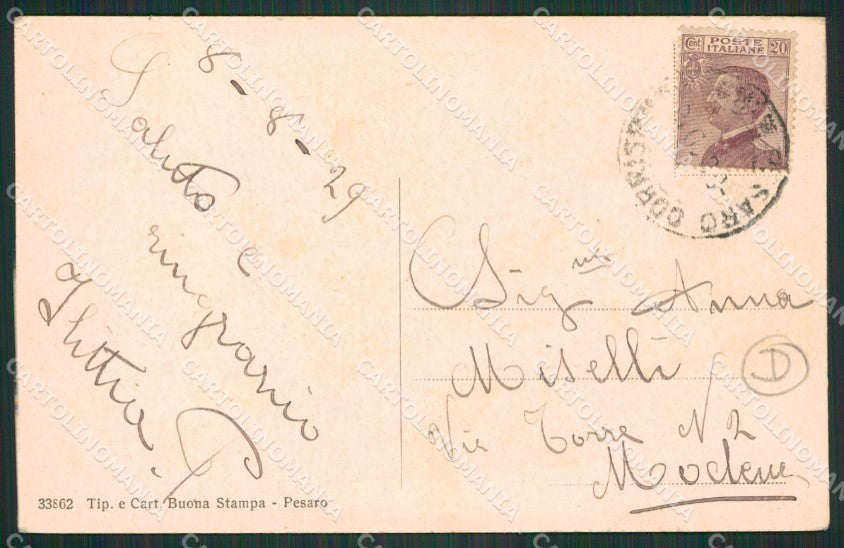 8-8-29
Saluto e
ringrazio
POSTE
ITALIANE
Cent 20
SARO CORRISP
Sig.na Anna
Miselli
Via Torre N 2
Modena
D
33862 Tip. e Cart. Buona Stampa - Pesaro
CARTOLINOMANIA